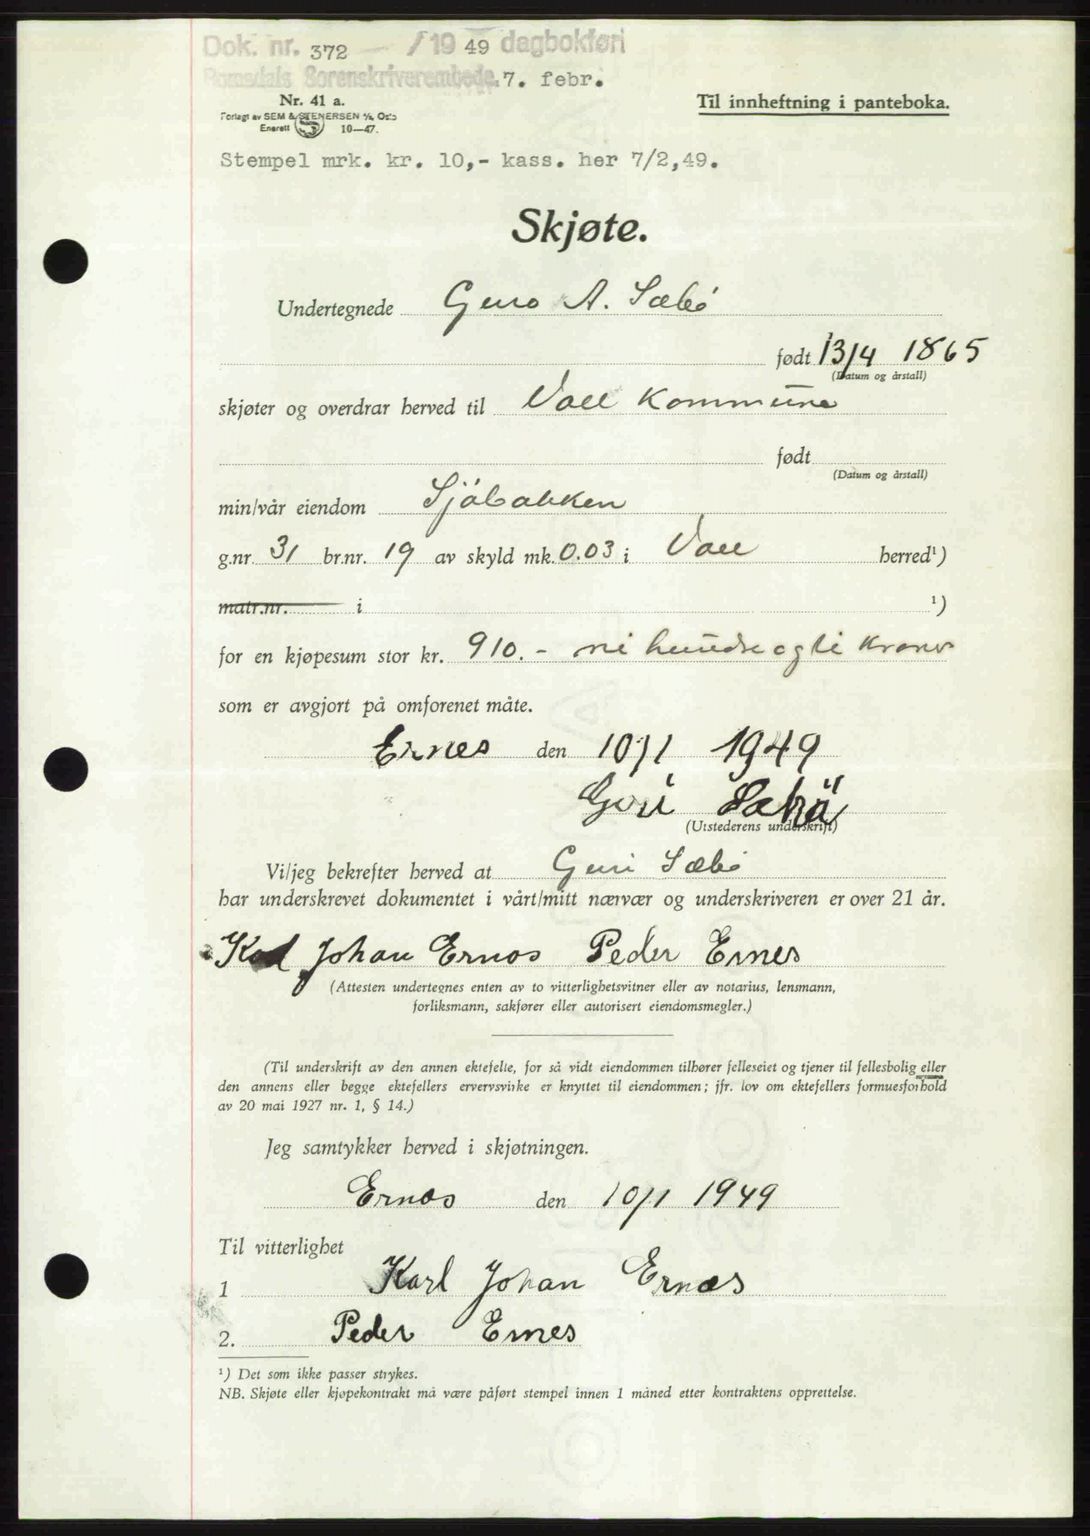 Dok. nr. 372 / 1949 dagbokført
Romsdals Sorenskriverembede. 7. febr.
Nr. 41 a.
Til innheftning i panteboka.
Forlagt av SEM & STENERSEN A/S, Oslo
Enerett 10—47.
Stempel mrk. kr. 10,- kass. her 7/2,49.
Skjøte.
Undertegnede Guro A. Sæbö
født 13/4 1865
(Datum og årstall)
skjøter og overdrar herved til Voll Kommune
født
(Datum og årstall)
min/vår eiendom Sjöbakken
g.nr. 31 br.nr. 19 av skyld mk. 0.03 i Voll herred¹)
matr.nr. i ¹)
for en kjøpesum stor kr. 910.- ni hundre og ti Kroner
som er avgjort på omforenet måte.
Ernes den 10/1 1949
Guri Sæbö
(Utstederens underskrift)
Vi/jeg bekrefter herved at Guri Sæbö
har underskrevet dokumentet i vårt/mitt nærvær og underskriveren er over 21 år.
Karl Johan Ernes Peder Ernes
(Attesten undertegnes enten av to vitterlighetsvitner eller av notarius, lensmann,
forliksmann, sakfører eller autorisert eiendomsmegler.)
(Til underskrift av den annen ektefelle, for så vidt eiendommen tilhører felleseiet og tjener til fellesbolig eller
den annens eller begge ektefellers ervervsvirke er knyttet til eiendommen; jfr. lov om ektefellers formuesforhold
av 20 mai 1927 nr. 1, § 14.)
Jeg samtykker herved i skjøtningen.
Ernes den 10/1 1949
Til vitterlighet
1 Karl Johan Ernes
2. Peder Ernes
¹) Det som ikke passer strykes.
NB. Skjøte eller kjøpekontrakt må være påført stempel innen 1 måned etter kontraktens opprettelse.